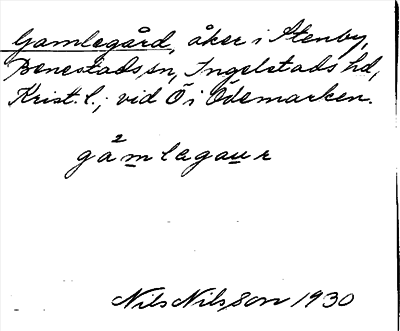 Gamlegård, åker i Stenby,
Benestads sn, Ingelstads hd,
Krist. l.; vid Ö i Ödemarken.
gå²mlegaur
Nils Nilsson 1930